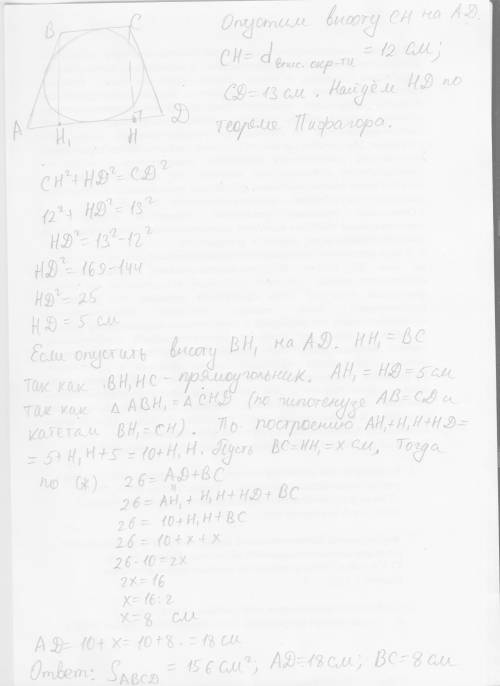 B C
A H₁ H D
Опустим высоту CH на AD.
CH = d впис. окр-ти = 12 см;
CD = 13 см. Найдём HD по
теореме Пифагора.
CH² + HD² = CD²
12² + HD² = 13²
HD² = 13² - 12²
HD² = 169 - 144
HD² = 25
HD = 5 см
Если опустить высоту BH₁ на AD. HH₁ = BC
так как BH₁HC - прямоугольник. AH₁ = HD = 5 см
так как △ABH₁ = △CHD (по гипотенузе AB = CD и
катетам BH₁ = CH). По построению AH₁ + H₁H + HD =
= 5 + H₁H + 5 = 10 + H₁H. Пусть BC = HH₁ = x см, Тогда
по (*) 26 = AD + BC
26 = AH₁ + H₁H + HD + BC
26 = 10 + H₁H + BC
26 = 10 + x + x
26 - 10 = 2x
2x = 16
x = 16 : 2
x = 8 см
AD = 10 + x = 10 + 8 = 18 см
Ответ: S ABCD = 156 см²; AD = 18 см; BC = 8 см